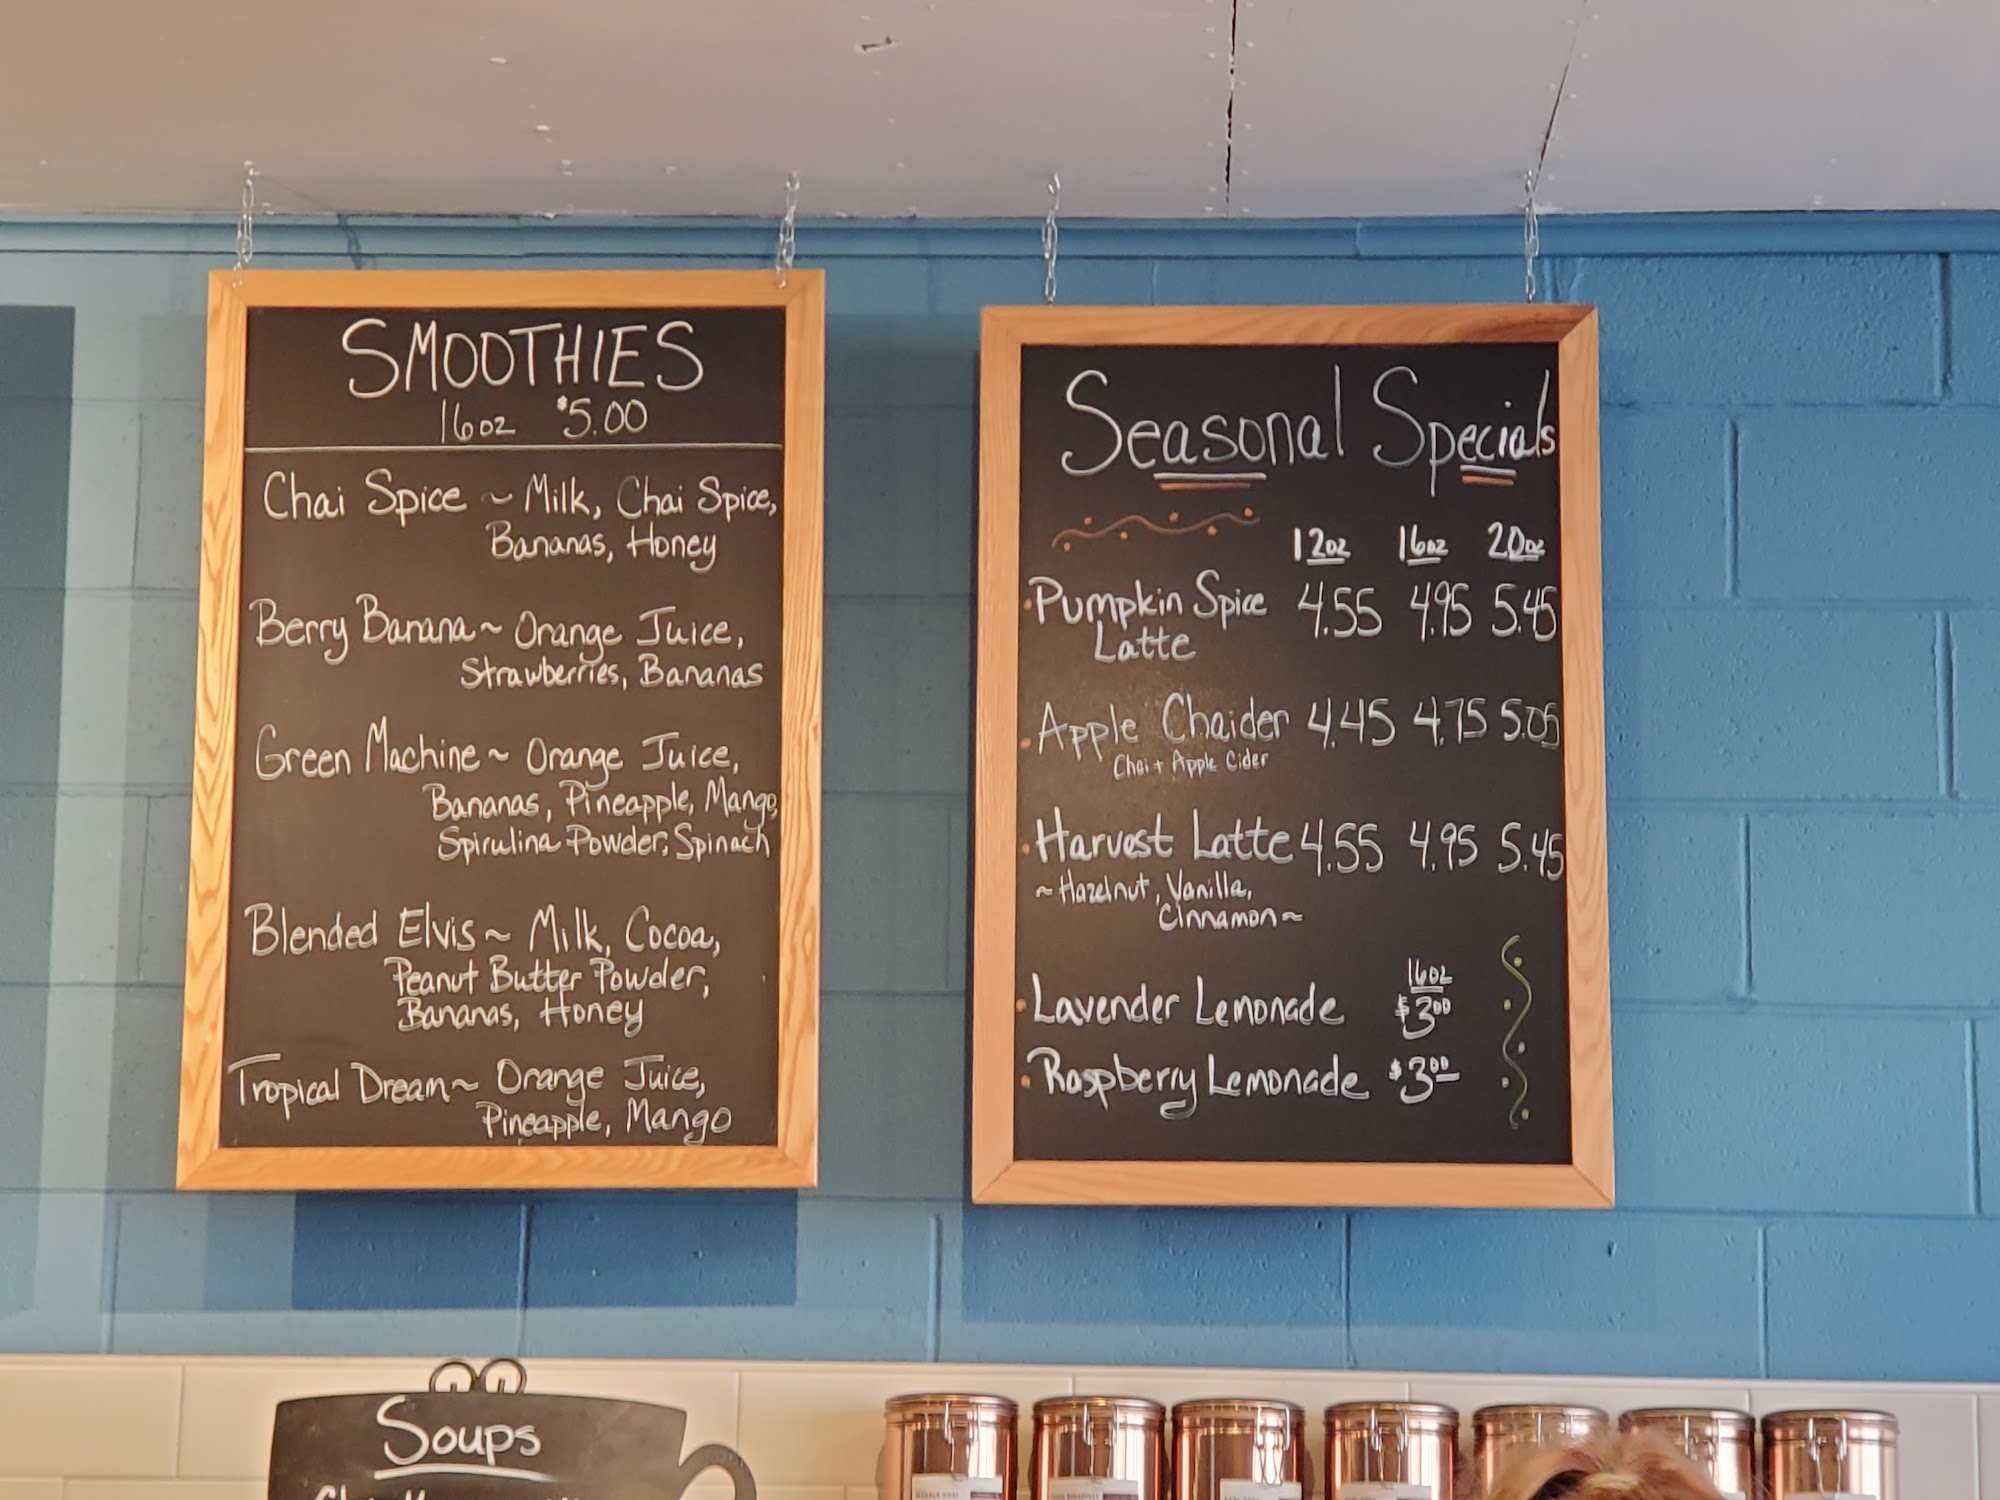 SMOOTHIES
16oz $5.00
Chai Spice ~ Milk, Chai Spice,
Bananas, Honey
Berry Banana ~ Orange Juice,
Strawberries, Bananas
Green Machine ~ Orange Juice,
Bananas, Pineapple, Mango,
Spirulina Powder, Spinach
Blended Elvis ~ Milk, Cocoa,
Peanut Butter Powder,
Bananas, Honey
Tropical Dream ~ Orange Juice,
Pineapple, Mango
Seasonal Specials
12oz 16oz 20oz
Pumpkin Spice 4.55 4.95 5.45
Latte
Apple Chaider 4.45 4.75 5.05
Chai + Apple Cider
Harvest Latte 4.55 4.95 5.45
~ Hazelnut, Vanilla,
Cinnamon ~
16oz
Lavender Lemonade $3.00
Raspberry Lemonade $3.00
Soups